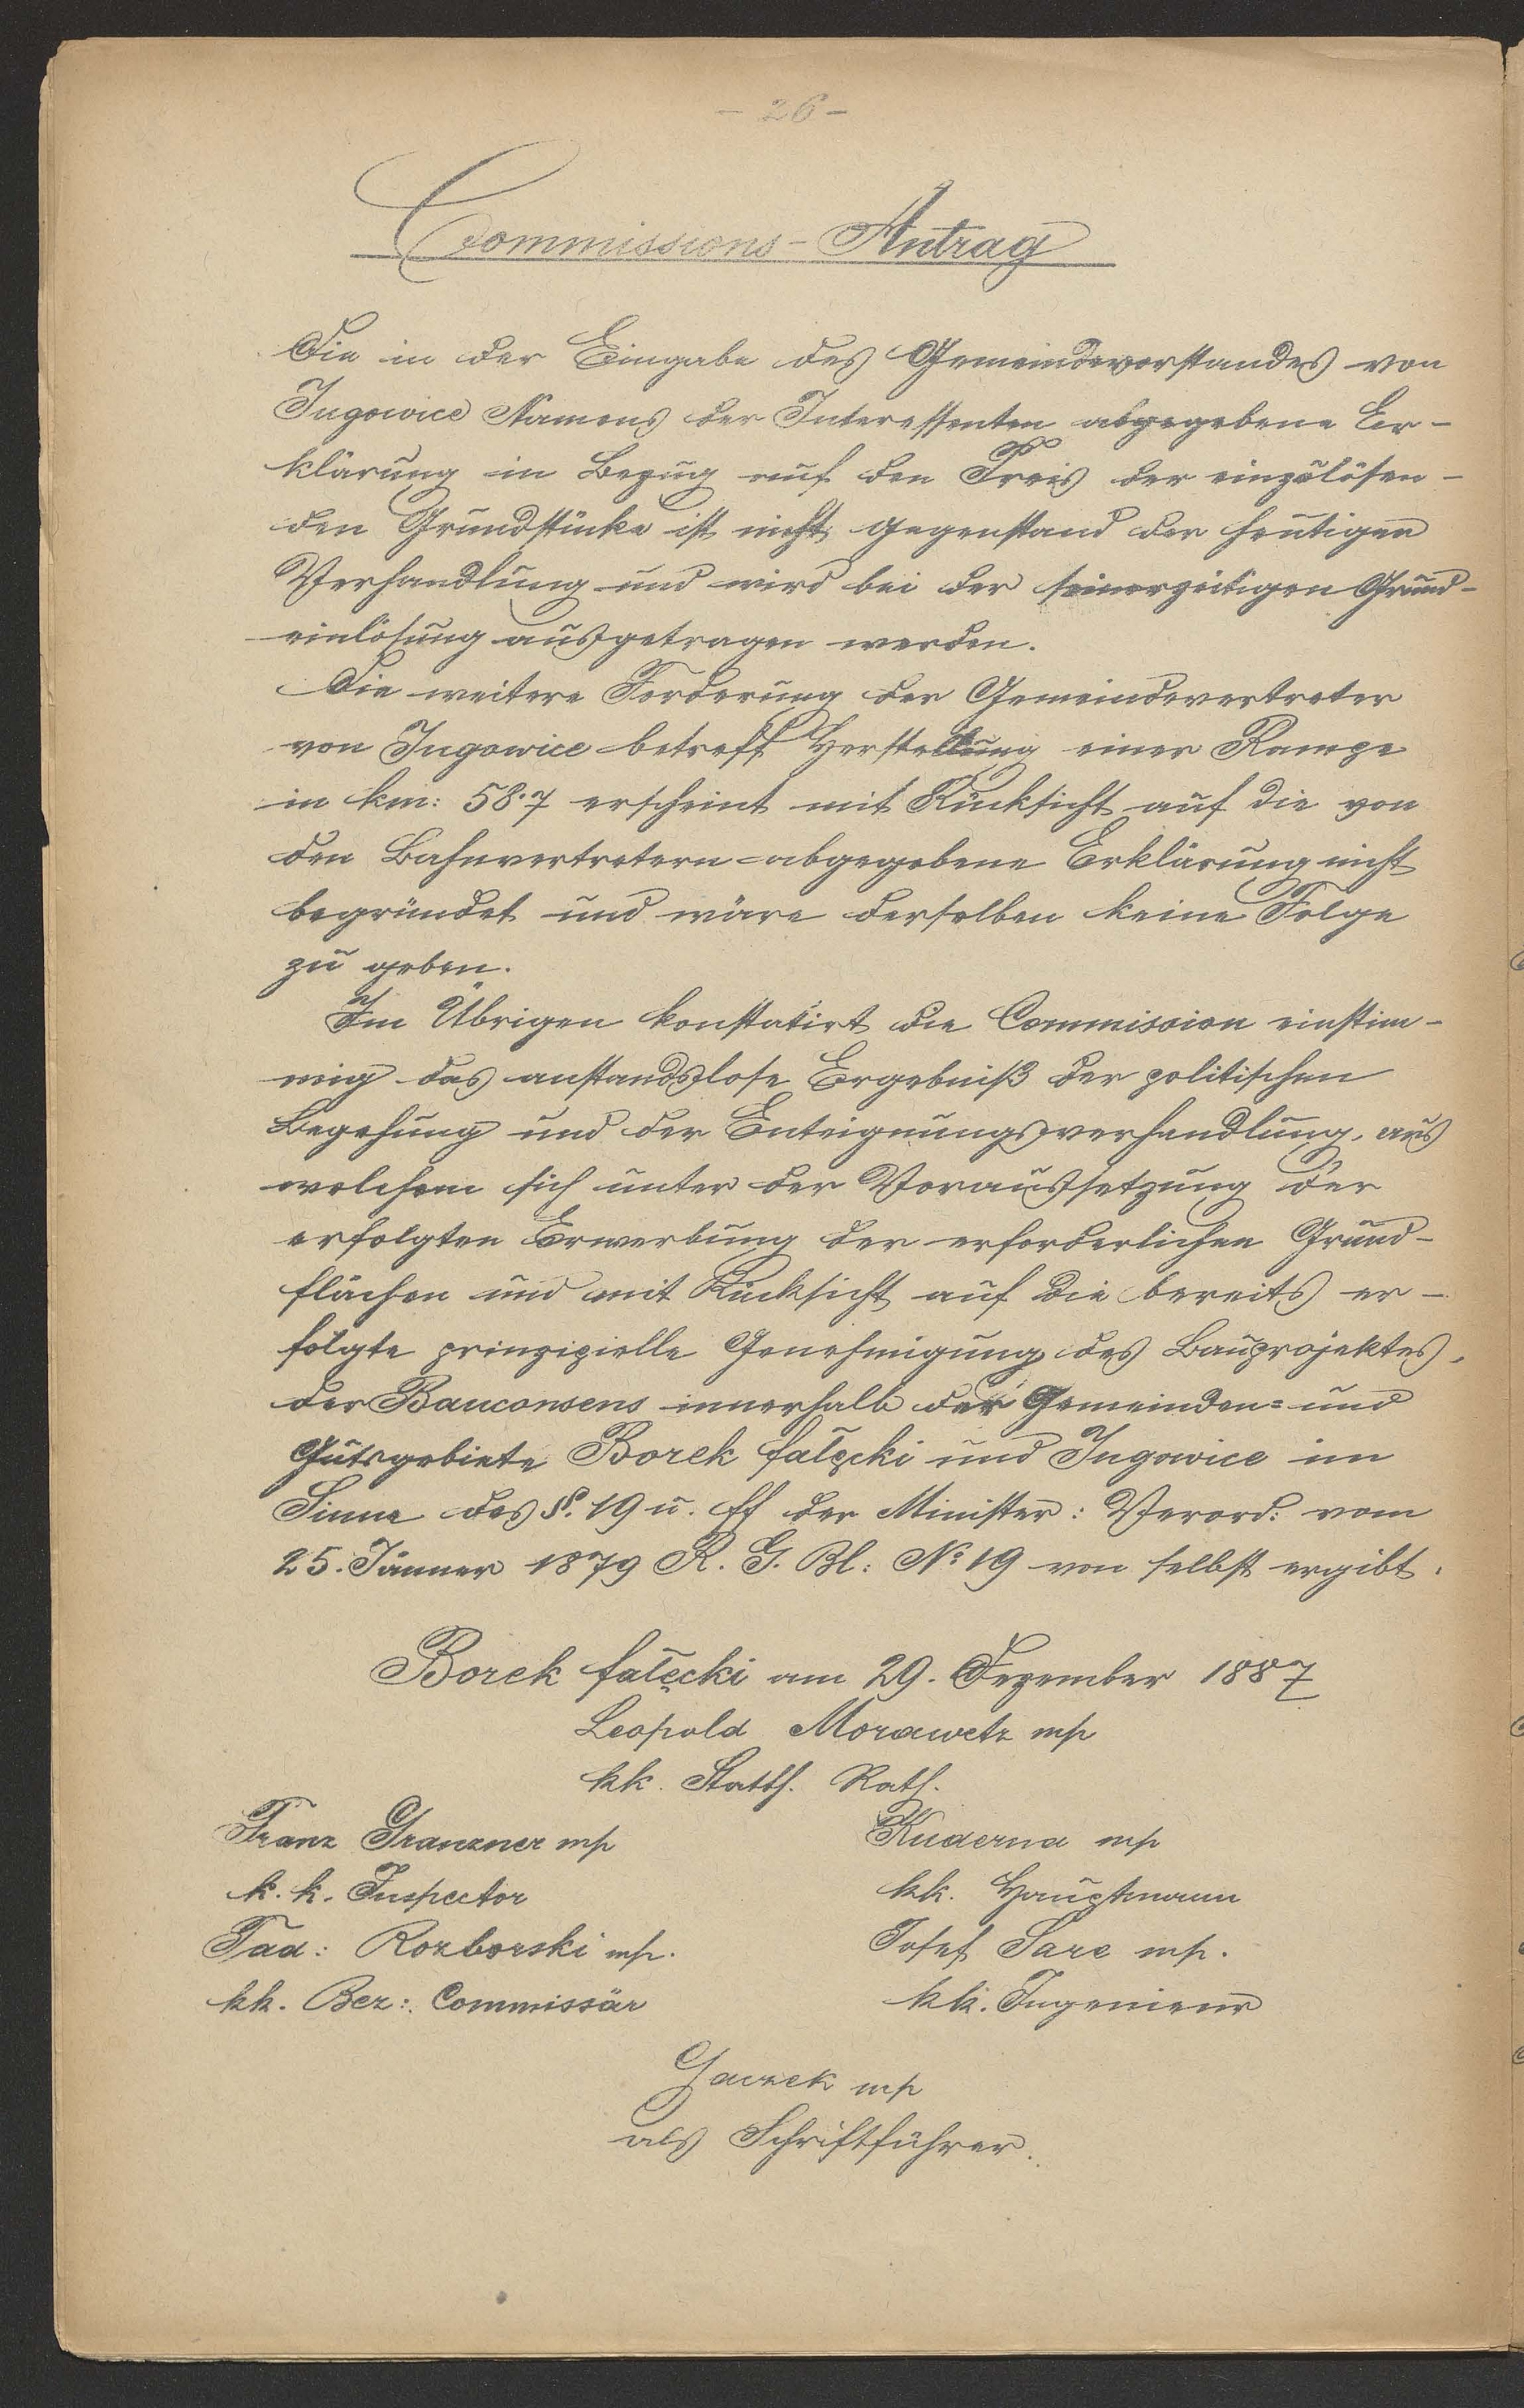 - 26 -
Commissions-Antrag
Die in der Eingabe des Gemeindevorstandes von
Jugowice Namens der Interessenten abgegebene Er-
klärung in Bezug auf den Preis der einzulösen-
den Grundstücke ist nicht Gegenstand der heutigen
Verhandlung und wird bei der seinerzeitigen Grund-
einlösung ausgetragen werden.
Die weitere Forderung der Gemeindevertreter
von Jugowice betreff Herstellung einer Rampe
in km: 58.7 erscheint mit Rücksicht auf die von
den Bahnvertretern abgegebene Erklärung nicht
begründet und wäre derselben keine Folge
zu geben.
Im Übrigen konstatirt die Commission einstim-
mig das anstandslose Ergebniß der politischen
Begehung und der Enteignungsverhandlung, aus
welchem sich unter der Voraussetzung der
erfolgten Erwerbung der erforderlichen Grund-
flächen und mit Rücksicht auf die bereits er-
folgte prinzipielle Genehmigung des Bauprojektes,
der Bauconsens innerhalb der Gemeinden= und
Gutsgebiete Borek fałęcki und Jugowice im
Sinne des §. 19 u. ff der Minister: Verord: vom
25. Jänner 1879 R. G. Bl: No 19 von selbst ergibt.
Borek fałęcki am 29. Dezember 1887
Leopold Morawetz mp
kk. Statth. Rath.
Franz Granzner mp
Kuderna mp
k. k. Inspector
kk. Hauptmann
Tad: Rozborski mp.
Josef Sare mp.
kk. Bez: Commissär
kk. Ingenieur
Gaczek mp
als Schriftführer.